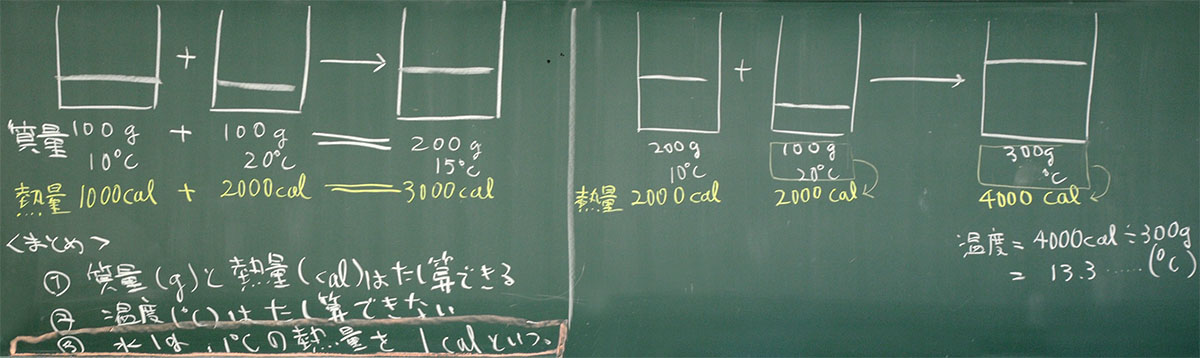 +
質量 100g + 100g = 200g
10℃ 20℃ 15℃
熱量 1000cal + 2000cal = 3000cal
<まとめ>
① 質量(g)と熱量(cal)はたし算できる
② 温度(℃)はたし算できない
③ 水1g、1℃の熱量を1calという。
+
200g 100g 300g
10℃ 20℃ ℃
熱量 2000cal 2000cal 4000cal
温度 = 4000cal÷300g
= 13.3……(℃)